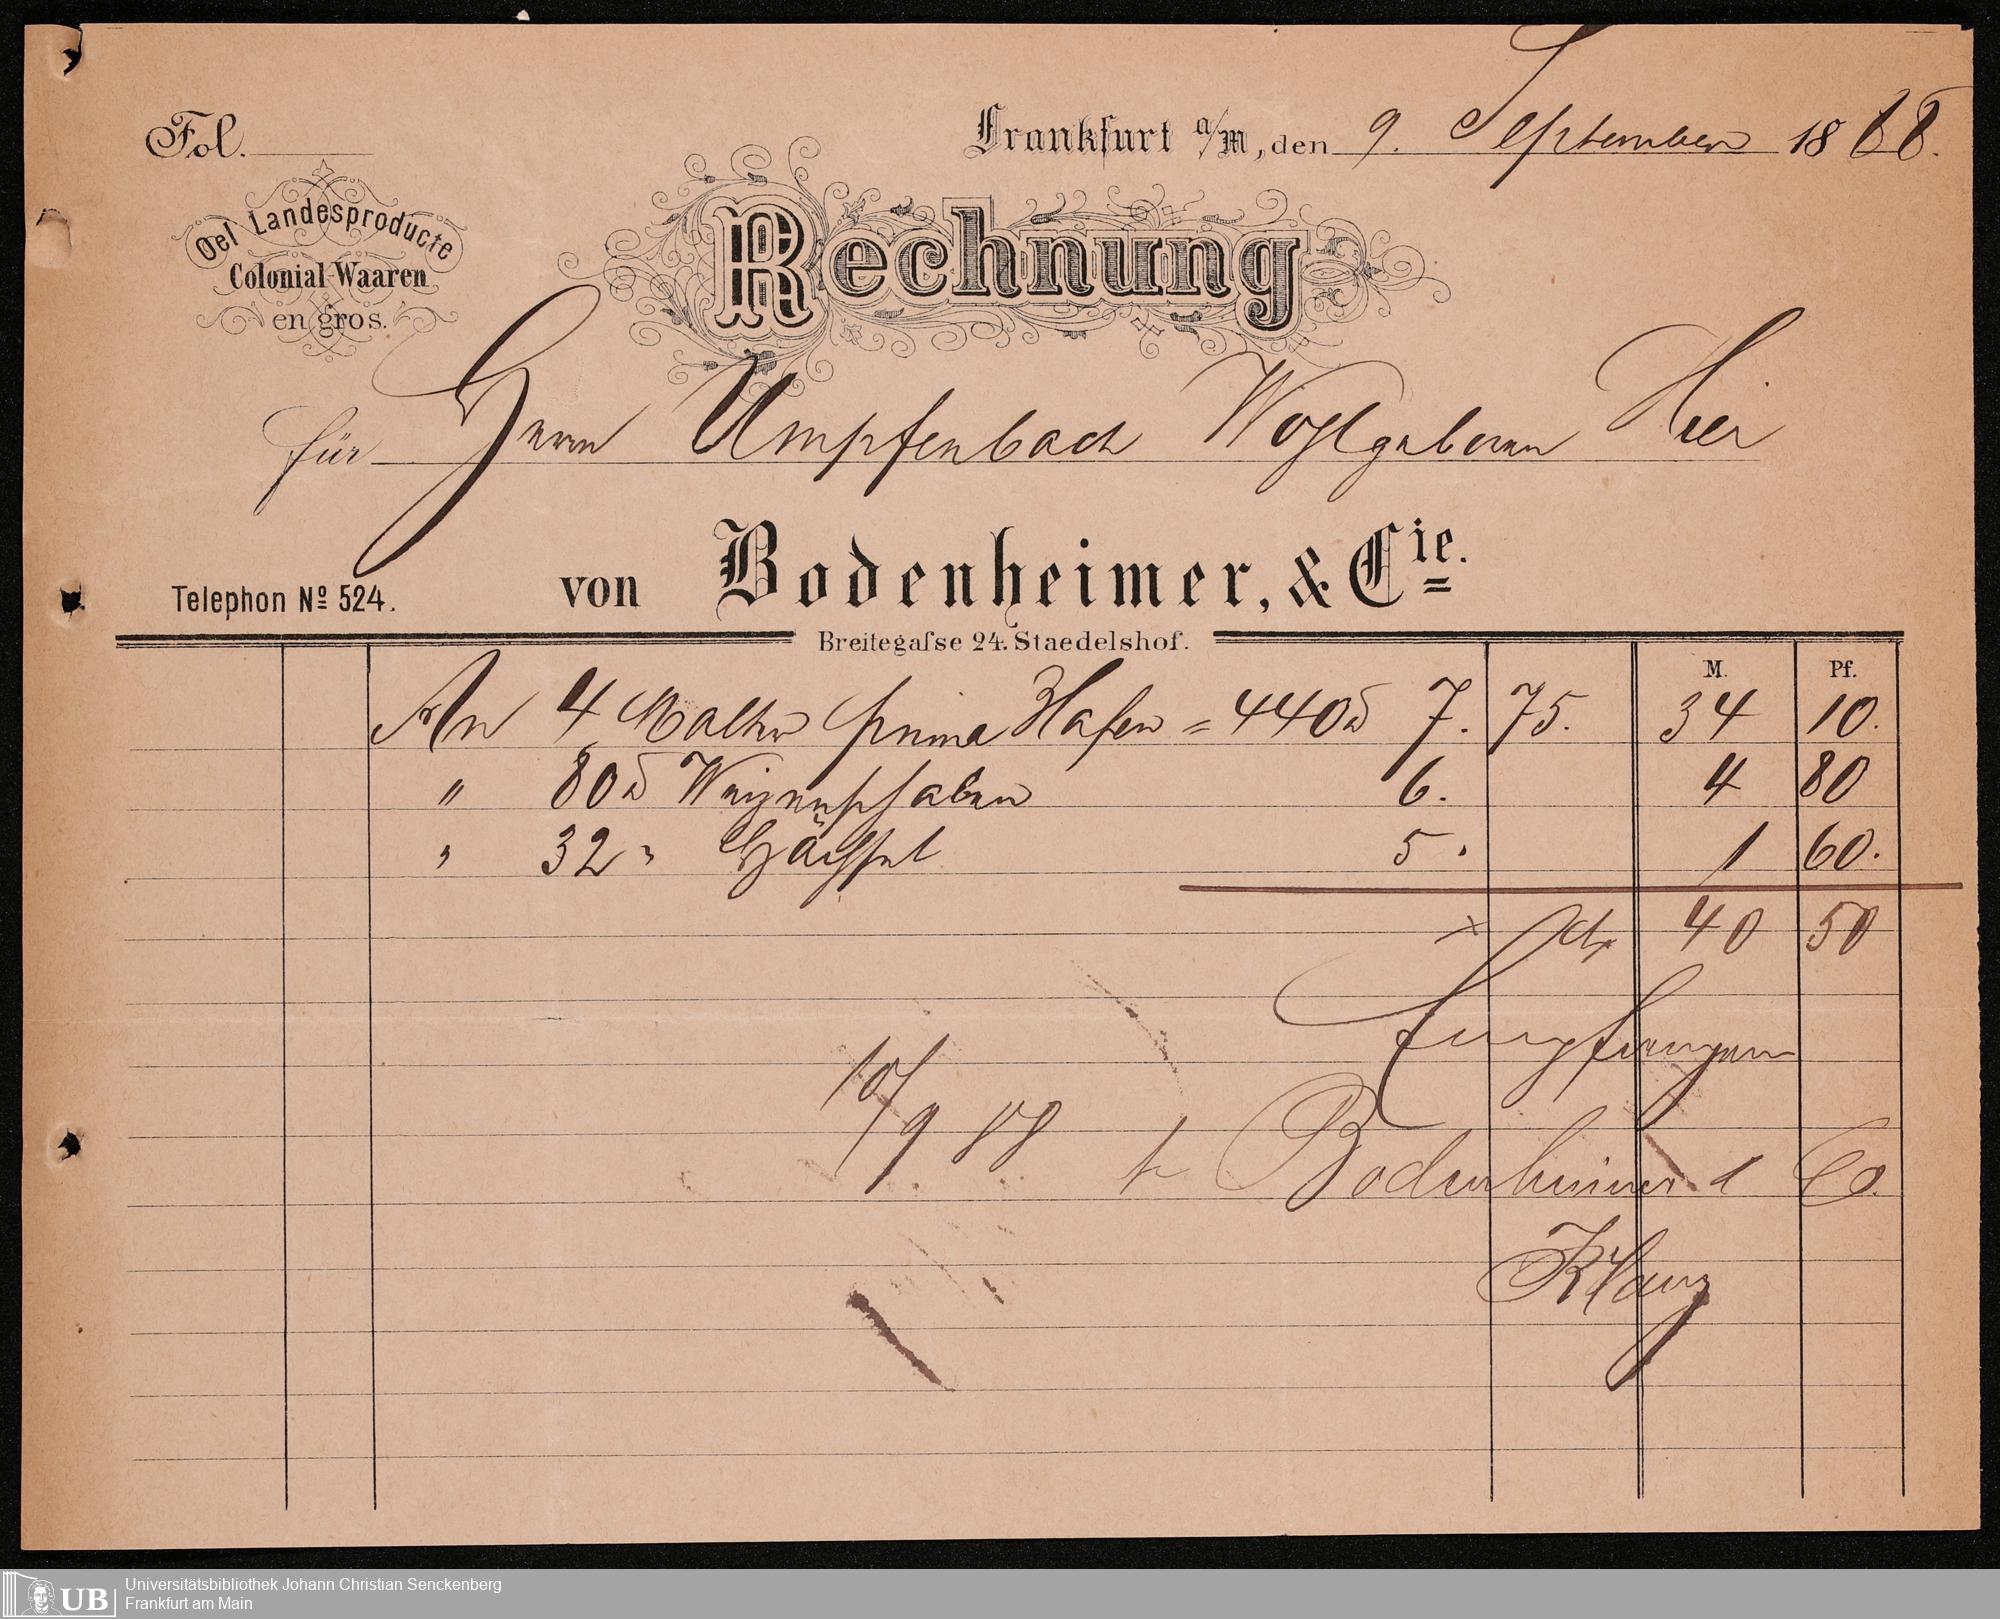 Fol.
Frankfurt a/M, den 9. September 1888.
Oel Landesproducte
Colonial-Waaren
en gros.
Rechnung
für Herrn Umpfenbach Wohlgeboren Hier
von Bodenheimer, & Cie.
Telephon No 524.
Breitegaſse 24. Staedelshof.
M. Pf.
An 4 Malter prima Hafer = 440 ℔ 7. 75. 34 10.
" 80 ℔ Weizenschaben 6. 4 80
" 32 " Häcksel 5. 1 60.
40 50
Empfangen
10/9 88 Bodenheimer & Co.
Universitätsbibliothek Johann Christian Senckenberg
Frankfurt am Main
UB